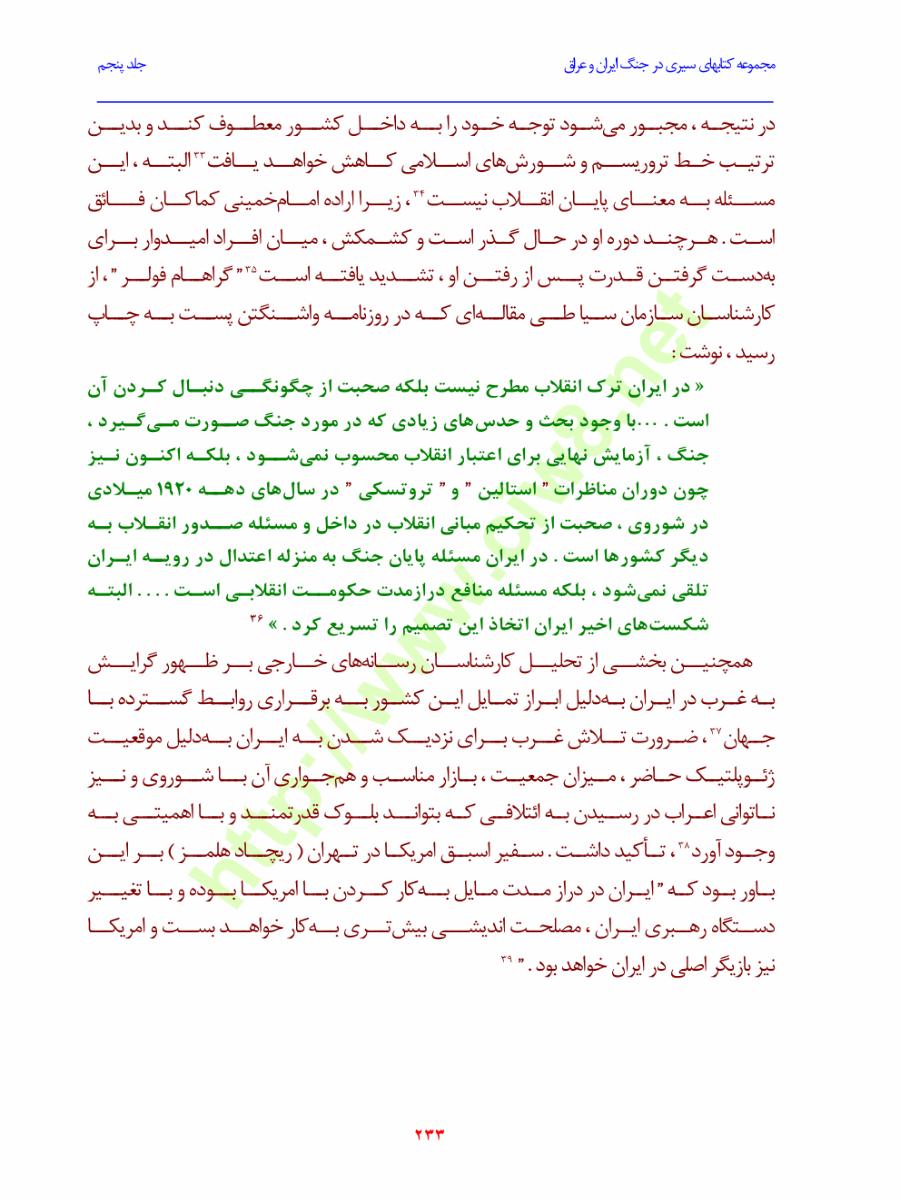 مجموعه کتابهای سیری در جنگ ایران و عراق جلد پنجم
در نتیجه ، مجبور می‌شود توجه خود را به داخل کشور معطوف کند و بدین
ترتیب خط تروریسم و شورش‌های اسلامی کاهش خواهد یافت۳۳ البته ، این
مسئله به معنای پایان انقلاب نیست۳۴، زیرا اراده امام‌خمینی کماکان فائق
است . هرچند دوره او در حال گذر است و کشمکش ، میان افراد امیدوار برای
به‌دست گرفتن قدرت پس از رفتن او ، تشدید یافته است۳۵" گراهام فولر "، از
کارشناسان سازمان سیا طی مقاله‌ای که در روزنامه واشنگتن پست به چاپ
رسید ، نوشت :
« در ایران ترک انقلاب مطرح نیست بلکه صحبت از چگونگی دنبال کردن آن
است . ...با وجود بحث و حدس‌های زیادی که در مورد جنگ صورت می‌گیرد ،
جنگ ، آزمایش نهایی برای اعتبار انقلاب محسوب نمی‌شود ، بلکه اکنون نیز
چون دوران مناظرات " استالین " و " تروتسکی " در سال‌های دهه ۱۹۲۰ میلادی
در شوروی ، صحبت از تحکیم مبانی انقلاب در داخل و مسئله صدور انقلاب به
دیگر کشورها است . در ایران مسئله پایان جنگ به منزله اعتدال در رویه ایران
تلقی نمی‌شود ، بلکه مسئله منافع درازمدت حکومت انقلابی است . . . . البته
شکست‌های اخیر ایران اتخاذ این تصمیم را تسریع کرد . » ۳۶
همچنین بخشی از تحلیل کارشناسان رسانه‌های خارجی بر ظهور گرایش
به غرب در ایران به‌دلیل ابراز تمایل این کشور به برقراری روابط گسترده با
جهان۳۷، ضرورت تلاش غرب برای نزدیک شدن به ایران به‌دلیل موقعیت
ژئوپلتیک حاضر ، میزان جمعیت ، بازار مناسب و هم‌جواری آن با شوروی و نیز
ناتوانی اعراب در رسیدن به ائتلافی که بتواند بلوک قدرتمند و با اهمیتی به
وجود آورد۳۸، تأکید داشت . سفیر اسبق امریکا در تهران ( ریچاد هلمز ) بر این
باور بود که "ایران در دراز مدت مایل به‌کار کردن با امریکا بوده و با تغییر
دستگاه رهبری ایران ، مصلحت اندیشی بیش‌تری به‌کار خواهد بست و امریکا
نیز بازیگر اصلی در ایران خواهد بود . " ۳۹
http://www.ciw8.net
۲۳۳